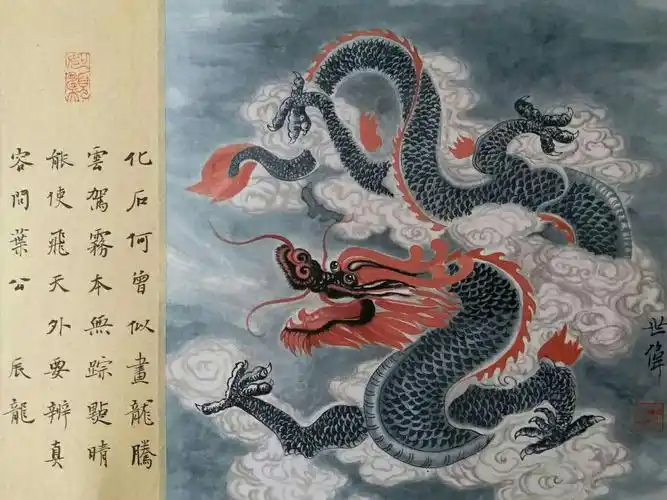 化石何曾似畫龍騰
雲駕霧本無踪點晴
能使飛天外要辨真
容問葉公 辰龍
世偉